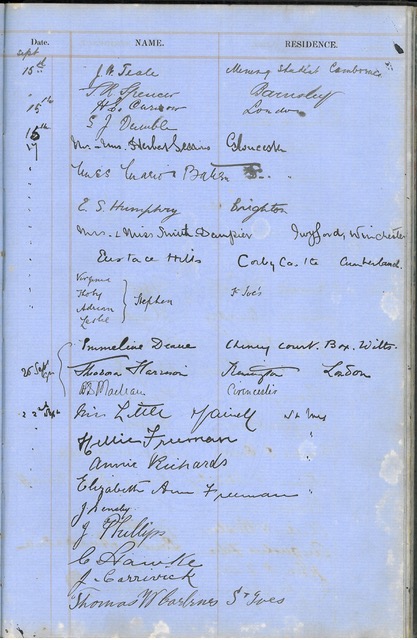 Date. NAME. RESIDENCE.
Sept
15th J. W. Teale Mining Student Camborne
" J R Spencer Barnsley
15th H. E. London
15th E J Dumble
17 Mr & Mrs Herbert Sessions Gloucester
" Baker "
" E. S. Humphry Brighton
" Mrs. & Miss Smith Dampier Twyford, Winchester
" Eustace Hills Corby Castle Cumberland.
" Virginia
Thoby
Adrian
Leslie
Stephen
St Ives
Emmeline Deane Cheney Court. Box. Wilts.
26 Sept Theodora Harrison Kensington London
Maclean Cirencester
22nd Sept Miss Little St Ives
" Nellie Freeman "
" Annie Richards
" Elizabeth Ann Freeman "
" J
" J Phillips
" C Hawke
" J. Carrivick
" Thomas W St Ives